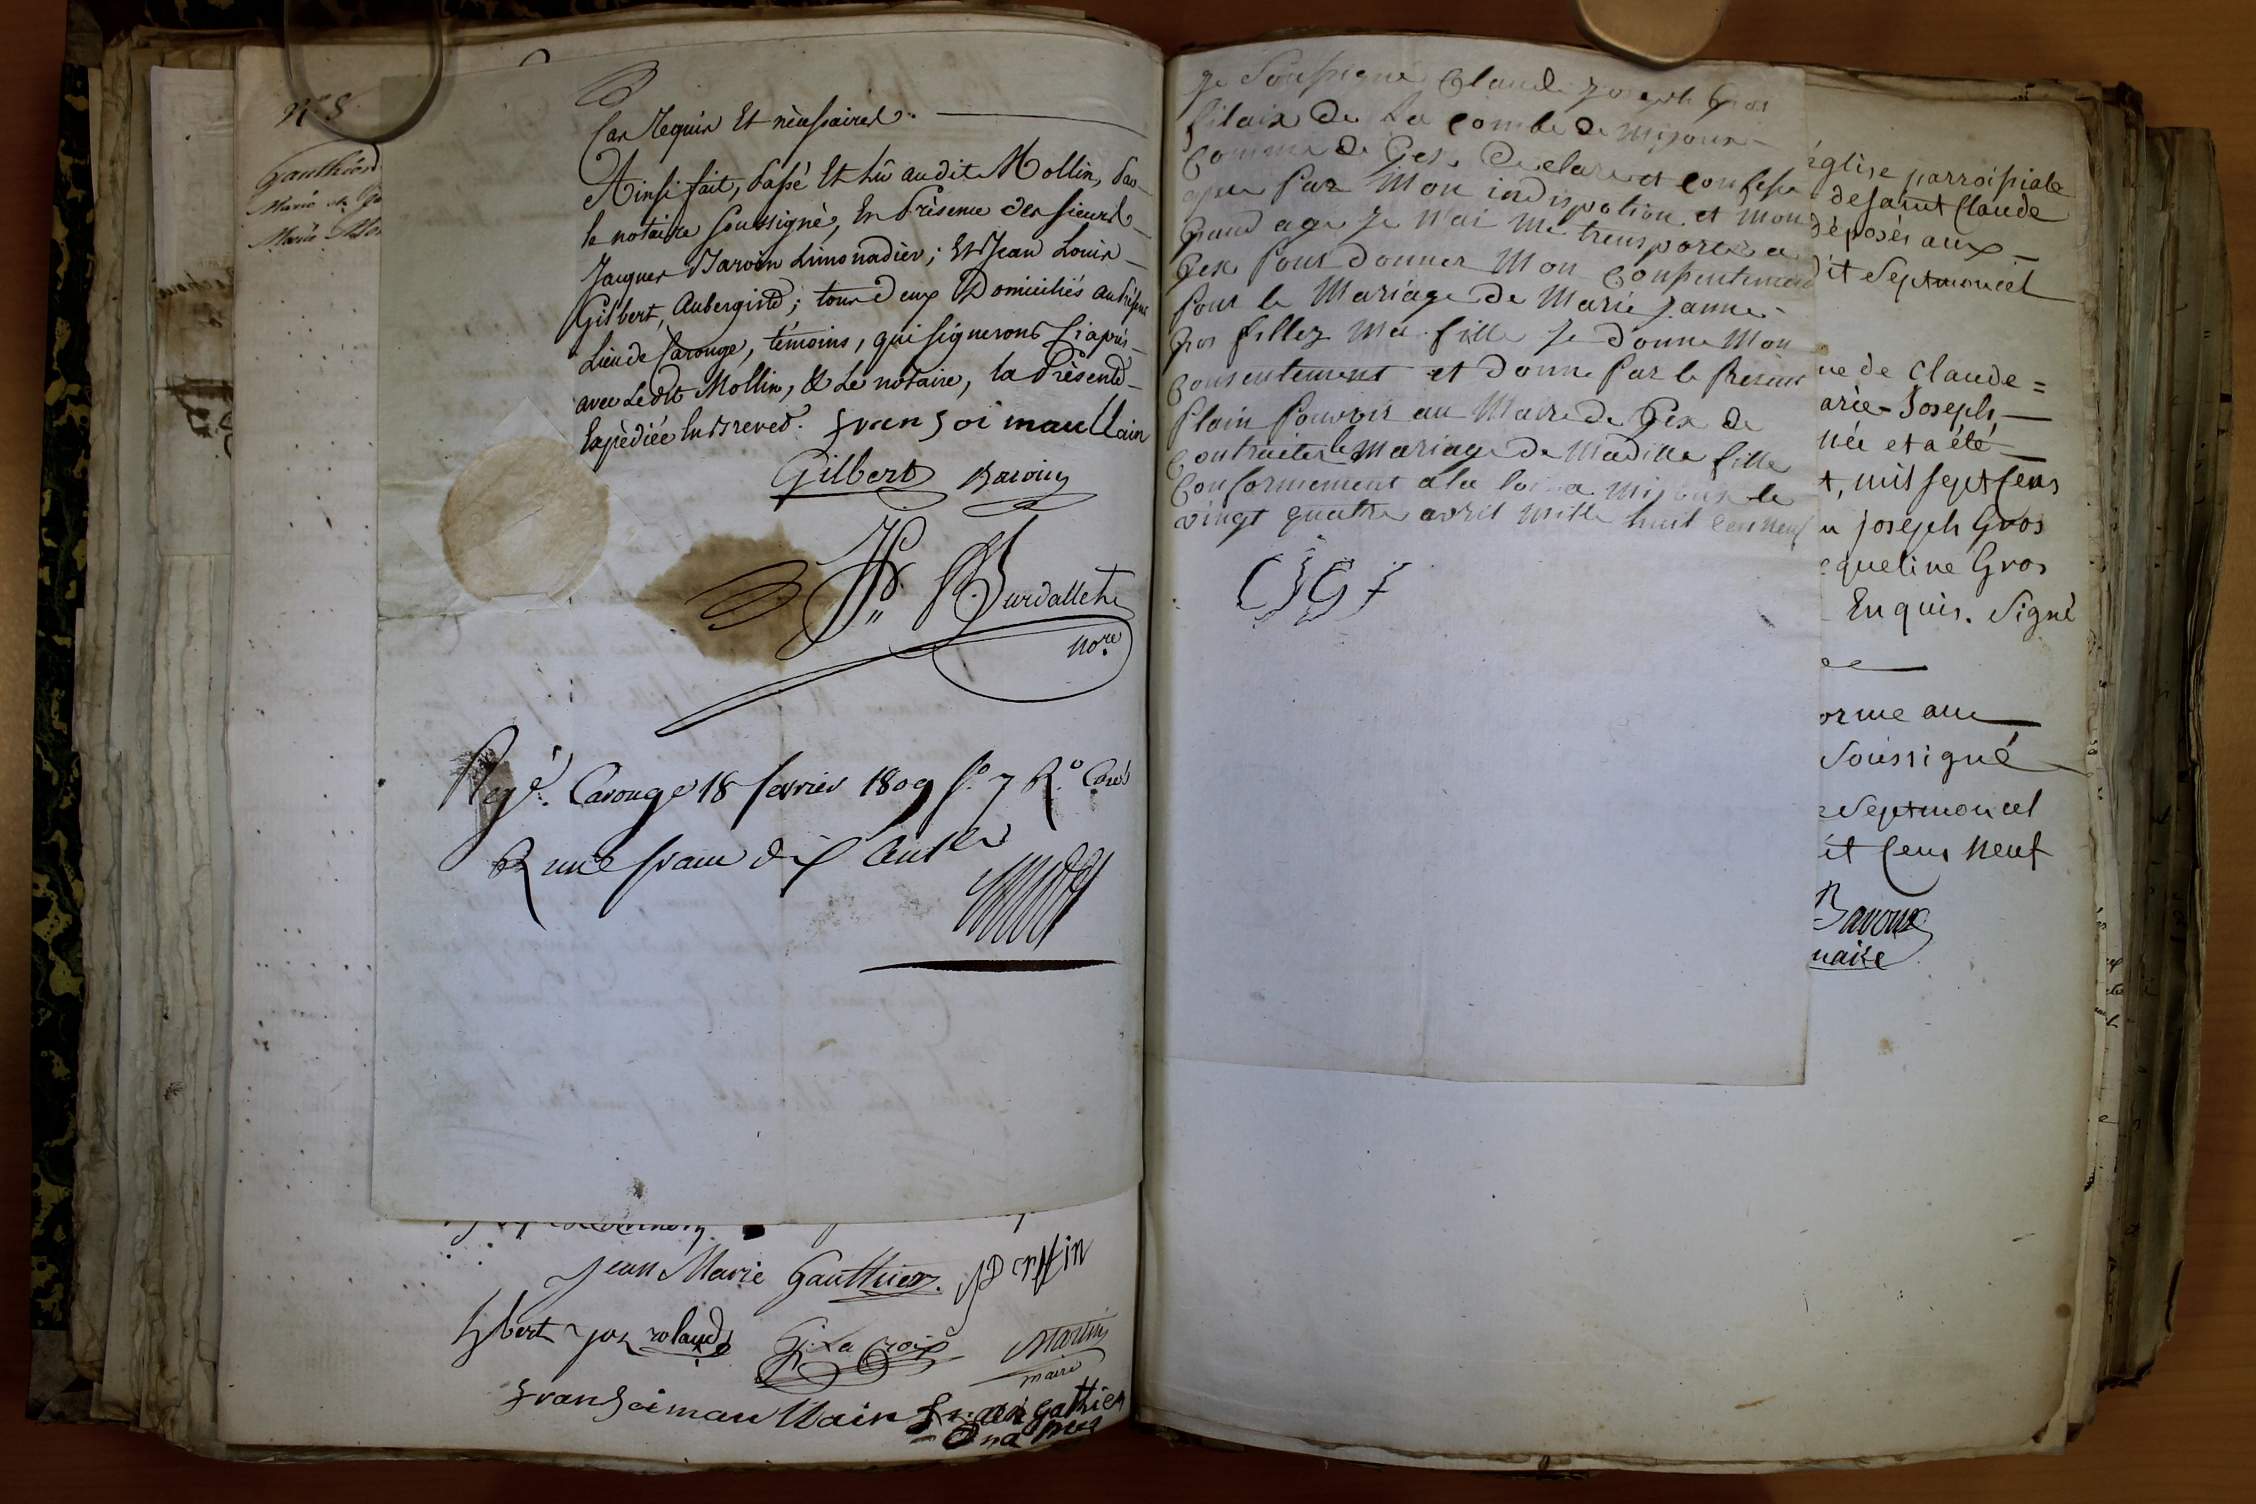 N° 8
Gauthier
Marie
Marie
Cas requis Et nècessaires.
Ainsi fait, Passé Et Lû audit Mollin, Par
le notaire soussigné, En Présence des sieurs
Jacques Baroin Limonadier; Et Jean Louis
Gilbert, Aubergiste; tous deux Domiciliés au Présent
Lieu de Carouge, témoins, qui signeront Ci après
avec Ledit Mollin, & Le notaire, la Présente
Expèdiée En Brevet. fransoi maullain
Gilbert Baroin
Burdallet
nore
Regé. Carouge 18 fevrier 1809 fo. 7 Ro. Cases
R un franc dix Cent
Jean Marie Gauthier.
Lacroix Martin
maire
fransoi maullain gathier
Je Soussigné Claude Joseph Gros
filaix de La Combe de mijoux
Comune de Gex Declare et Confesse
que Par Mon indispotion et Mon
Grand age Je n'ai Me transporter a
Gex Pour Donner Mon Consentement
Pour le Mariage de Marie Janne
Gros fillez Ma fille Je Donne Mon
Consentement et Donne Par le Present
Plain Pouvoir au Maire de Gex de
Contraiter le Mariage de Madille fille
Conformement a la loi a Mijoux le
vingt quatre avril Mille huit Cen neuf
CJGf
église parroissiale
de saint Claude
déposés aux
dit Septmoncel
ne de Claude =
arie-Joseph
née et a été
t, mil sept cens
n joseph Gros
queline Gros
Enquis. Signé
orme aux
Soussigné
Septmoncel
it cens neuf
Bavoux
maire